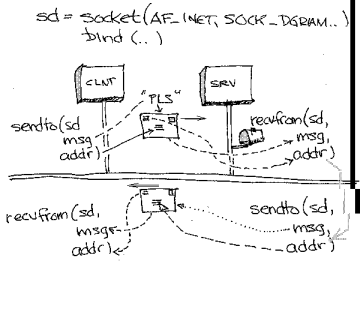 sd = socket(AF_INET, SOCK_DGRAM..)
bind (..)
CLNT
SRV
"PLS"
sendto(sd
msg
addr)
recvfrom(sd,
msg,
addr)
recvfrom(sd,
msg
addr)
sendto(sd,
msg,
addr)